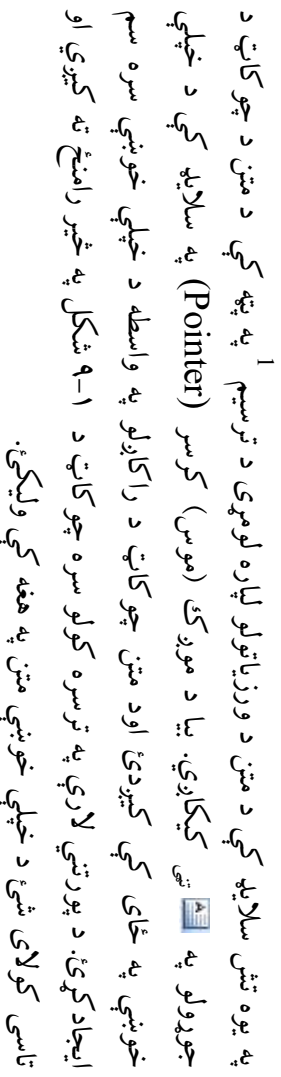 په یوه تش سلایډ کې د متن د ورزیاتولو لپاره لومړی د ترسیم 1 په پټه کې د متن د چوکاټ د
جوړولو په تڼۍ کیکاږي. بیا د موږک (موس) کرسر (Pointer) په سلایډ کې د خپلې
خوښې په ځای کې کیږدئ اود متن چوکاټ د راکاږلو په واسطه د خپلې خوښې سره سم
ایجاد کړئ. د پورتنۍ لارې په ترسره کولو سره چوکاټ د ۱-۹ شکل په څېر رامنځ ته کیږي او
تاسې کولای شئ د خپلې خوښې متن په هغه کې ولیکئ.